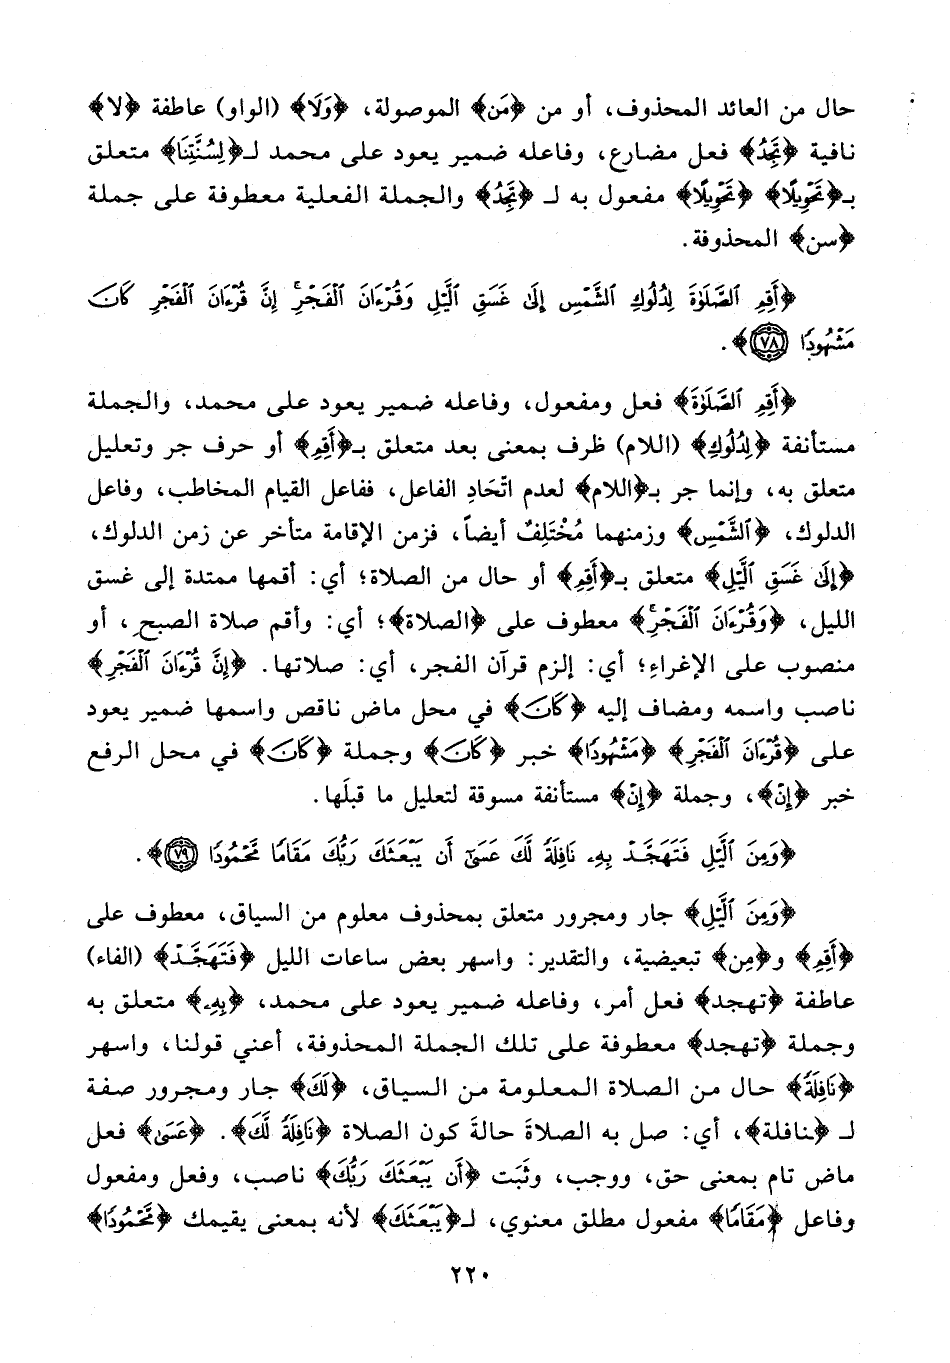 حال من العائد المحذوف، أو من ﴿مَن﴾ الموصولة، ﴿وَلَا﴾ (الواو) عاطفة ﴿لا﴾
نافية ﴿تَجِدُ﴾ فعل مضارع، وفاعله ضمير يعود على محمد لـ﴿لِسُنَّتِنَا﴾ متعلق
بـ﴿تَحْوِيلًا﴾ ﴿تَحْوِيلًا﴾ مفعول به لـ ﴿تَجِدُ﴾ والجملة الفعلية معطوفة على جملة
﴿سن﴾ المحذوفة.
﴿أَقِمِ ٱلصَّلَوٰةَ لِدُلُوكِ ٱلشَّمْسِ إِلَىٰ غَسَقِ ٱلَّيْلِ وَقُرْءَانَ ٱلْفَجْرِ ۖ إِنَّ قُرْءَانَ ٱلْفَجْرِ كَانَ
مَشْهُودًا ٧٨﴾.
﴿أَقِمِ ٱلصَّلَوٰةَ﴾ فعل ومفعول، وفاعله ضمير يعود على محمد، والجملة
مستأنفة ﴿لِدُلُوكِ﴾ (اللام) ظرف بمعنى بعد متعلق بـ﴿أَقِمِ﴾ أو حرف جر وتعليل
متعلق به، وإنما جر بـ﴿اللام﴾ لعدم اتّحَادِ الفاعل، ففاعل القيام المخاطب، وفاعل
الدلوك، ﴿ٱلشَّمْسِ﴾ وزمنهما مُخْتَلِفٌ أيضاً، فزمن الإقامة متأخر عن زمن الدلوك،
﴿إِلَىٰ غَسَقِ ٱلَّيْلِ﴾ متعلق بـ﴿أَقِمِ﴾ أو حال من الصلاة؛ أي: أقمها ممتدة إلى غسق
الليل، ﴿وَقُرْءَانَ ٱلْفَجْرِ ۖ﴾ معطوف على ﴿الصلاة﴾؛ أي: وأقم صلاة الصبح، أو
منصوب على الإغراء؛ أي: إلزم قرآن الفجر، أي: صلاتها. ﴿إِنَّ قُرْءَانَ ٱلْفَجْرِ﴾
ناصب واسمه ومضاف إليه ﴿كَانَ﴾ في محل ماض ناقص واسمها ضمير يعود
على ﴿قُرْءَانَ ٱلْفَجْرِ﴾ ﴿مَشْهُودًا﴾ خبر ﴿كَانَ﴾ وجملة ﴿كَانَ﴾ في محل الرفع
خبر ﴿إِنّ﴾، وجملة ﴿إِنّ﴾ مستأنفة مسوقة لتعليل ما قبلَها.
﴿وَمِنَ ٱلَّيْلِ فَتَهَجَّدْ بِهِۦ نَافِلَةً لَّكَ عَسَىٰٓ أَن يَبْعَثَكَ رَبُّكَ مَقَامًا مَّحْمُودًا ٧٩﴾.
﴿وَمِنَ ٱلَّيْلِ﴾ جار ومجرور متعلق بمحذوف معلوم من السياق، معطوف على
﴿أَقِمِ﴾ و﴿مِن﴾ تبعيضية، والتقدير: واسهر بعض ساعات الليل ﴿فَتَهَجَّدْ﴾ (الفاء)
عاطفة ﴿تهجد﴾ فعل أمر، وفاعله ضمير يعود على محمد، ﴿بِهِۦ﴾ متعلق به
وجملة ﴿تهجد﴾ معطوفة على تلك الجملة المحذوفة، أعني قولنا، واسهر
﴿نَافِلَةً﴾ حال من الصلاة المعلومة من السياق، ﴿لَكَ﴾ جار ومجرور صفة
لـ ﴿نافلة﴾، أي: صل به الصلاةَ حالةَ كون الصلاة ﴿نَافِلَةً لَّكَ﴾. ﴿عَسَىٰ﴾ فعل
ماض تام بمعنى حق، ووجب، وثَبَت ﴿أَن يَبْعَثَكَ رَبُّكَ﴾ ناصب، وفعل ومفعول
وفاعل ﴿مَقَامًا﴾ مفعول مطلق معنوي، لـ﴿يَبْعَثَكَ﴾ لأنه بمعنى يقيمك ﴿مَّحْمُودًا﴾
٢٢٠